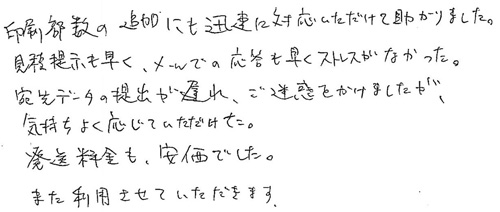 印刷部数の追加にも迅速に対応いただけて助かりました。
見積提示も早く、メールでの応答も早くストレスがなかった。
宛先データの提出が遅れ、ご迷惑をかけましたが、
気持ちよく応じていただけた。
発送料金も、安価でした。
また利用させていただきます。